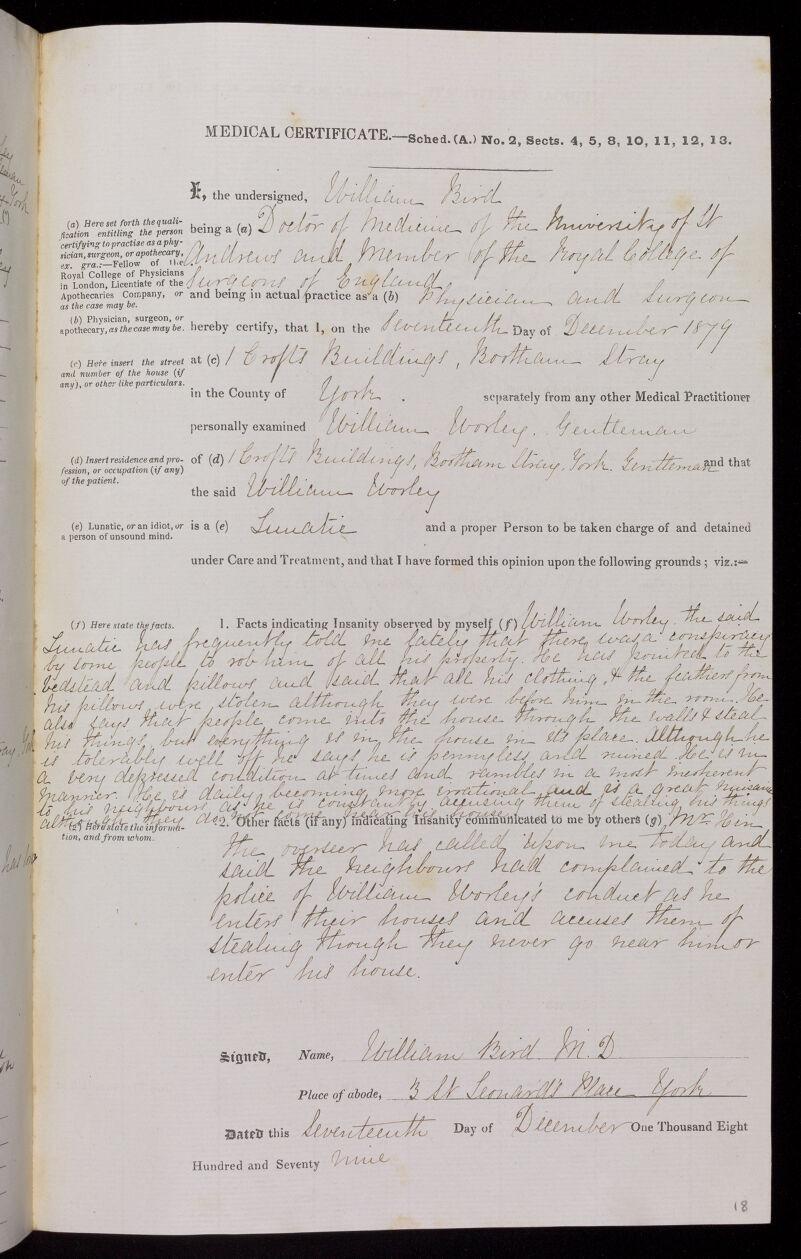 MEDICAL CERTIFICATE.—Sched. (A.) No. 2, Sects. 4, 5, 8, 10, 11, 12, 13.
I, the undersigned, William Bird
(a) Here set forth the quali-
fication entitling the person
certifying to practise as a phy-
sician, surgeon, or apothecary,
ex. gra.:—Fellow of the
Royal College of Physicians
in London, Licentiate of the
Apothecaries Company, or
as the case may be.
being a (a) Doctor of Medicine of the University of St
Andrews and Member of the Royal College of
Surgeons of England
and being in actual practice as a (b) Physician and Surgeon
(b) Physician, surgeon, or
apothecary, as the case may be.
hereby certify, that I, on the Seventeenth Day of December 1879
(c) Here insert the street
and number of the house (if
any), or other like particulars.
at (c) 1 Crofts Buildings, Bootham Stray
in the County of York. separately from any other Medical Practitioner
personally examined William Worley. Gentleman
(d) Insert residence and pro-
fession, or occupation (if any)
of the patient.
of (d) 1 Crofts Buildings, Bootham Stray. York. Gentleman and that
the said William Worley
(e) Lunatic, or an idiot, or
a person of unsound mind.
is a (e) Lunatic and a proper Person to be taken charge of and detained
under Care and Treatment, and that I have formed this opinion upon the following grounds; viz.:—
(f) Here state the facts.
1. Facts indicating Insanity observed by myself (f) William Worley. the said
Lunatic has frequently told me lately that there was a conspiracy
by some people to rob him of all his property. He has pointed to the
bedstead and pillows and said that all his clothing, & the feathers from
his pillows were stolen although they were before him in the room. He
also says that people come into the house through the walls & steal
his things, but everything is in the house in its place. Although he
is tolerably well off he says he is pennyless and ruined. He is in
a very depressed condition at times and rambles in a most incoherent
manner. He is daily becoming more irrational and is a great nuisance
to his neighbours as he is constantly accusing them of stealing his things
although they do not come near his house.
(g) Here state the informa-
tion, and from whom.
2. Other facts (if any) indicating Insanity communicated to me by others (g) Mr
the overseer has called upon me today and
said the neighbours had complained to the
police of William Worley's conduct as he
enters their houses and accuses them of
stealing though they never go near him or
enter his house.
Signed, Name, William Bird. M.D.
Place of abode, 3 St Leonard's Place York
Dated this Seventeenth Day of December One Thousand Eight
Hundred and Seventy nine
18